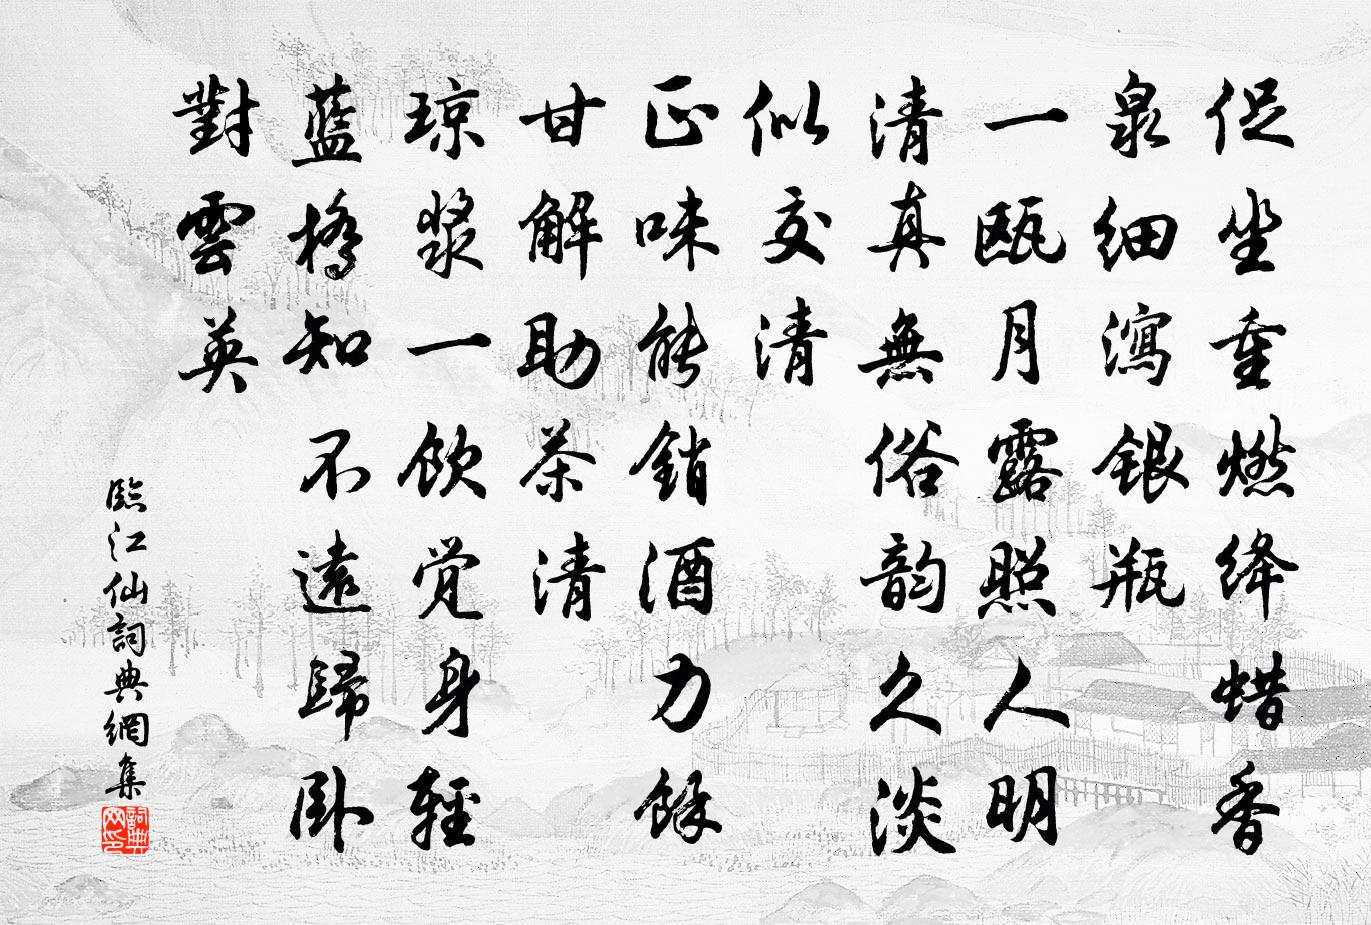 促坐重燃绛蜡香
泉细瀉银瓶
一瓯月露照人明
清真無俗韵久淡
似交清
正味能銷酒力餘
甘解助茶清
琼浆一飲觉身輕
蓝橋知不遠歸卧
對雲英
臨江仙詞典網集
詞典網印